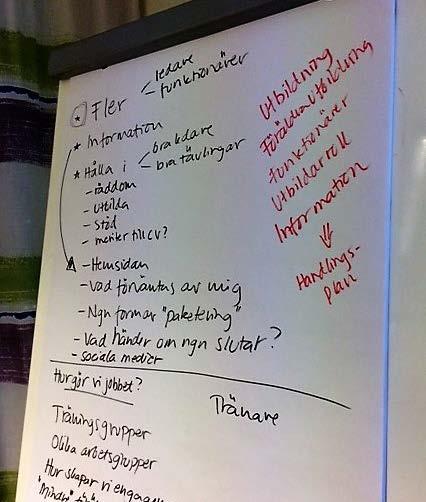 ledare
* Fler - funktionärer
* Information
* Hålla i - bra ledare
- bra tävlingar
- räddom
- utbilda
- stöd
- meriter till CV?
- Hemsidan
- Vad förväntas av mig
- Ngn form av "paketering"
- Vad händer om ngn slutar?
- sociala medier
Utbildning
Föräldrautbildning
funktionärer
Utbildarroll
Information
Handlings-
plan
Hur gör vi jobbet?
Tränare
Träningsgrupper
Olika arbetsgrupper
Hur skapar vi engage
"Mindre"